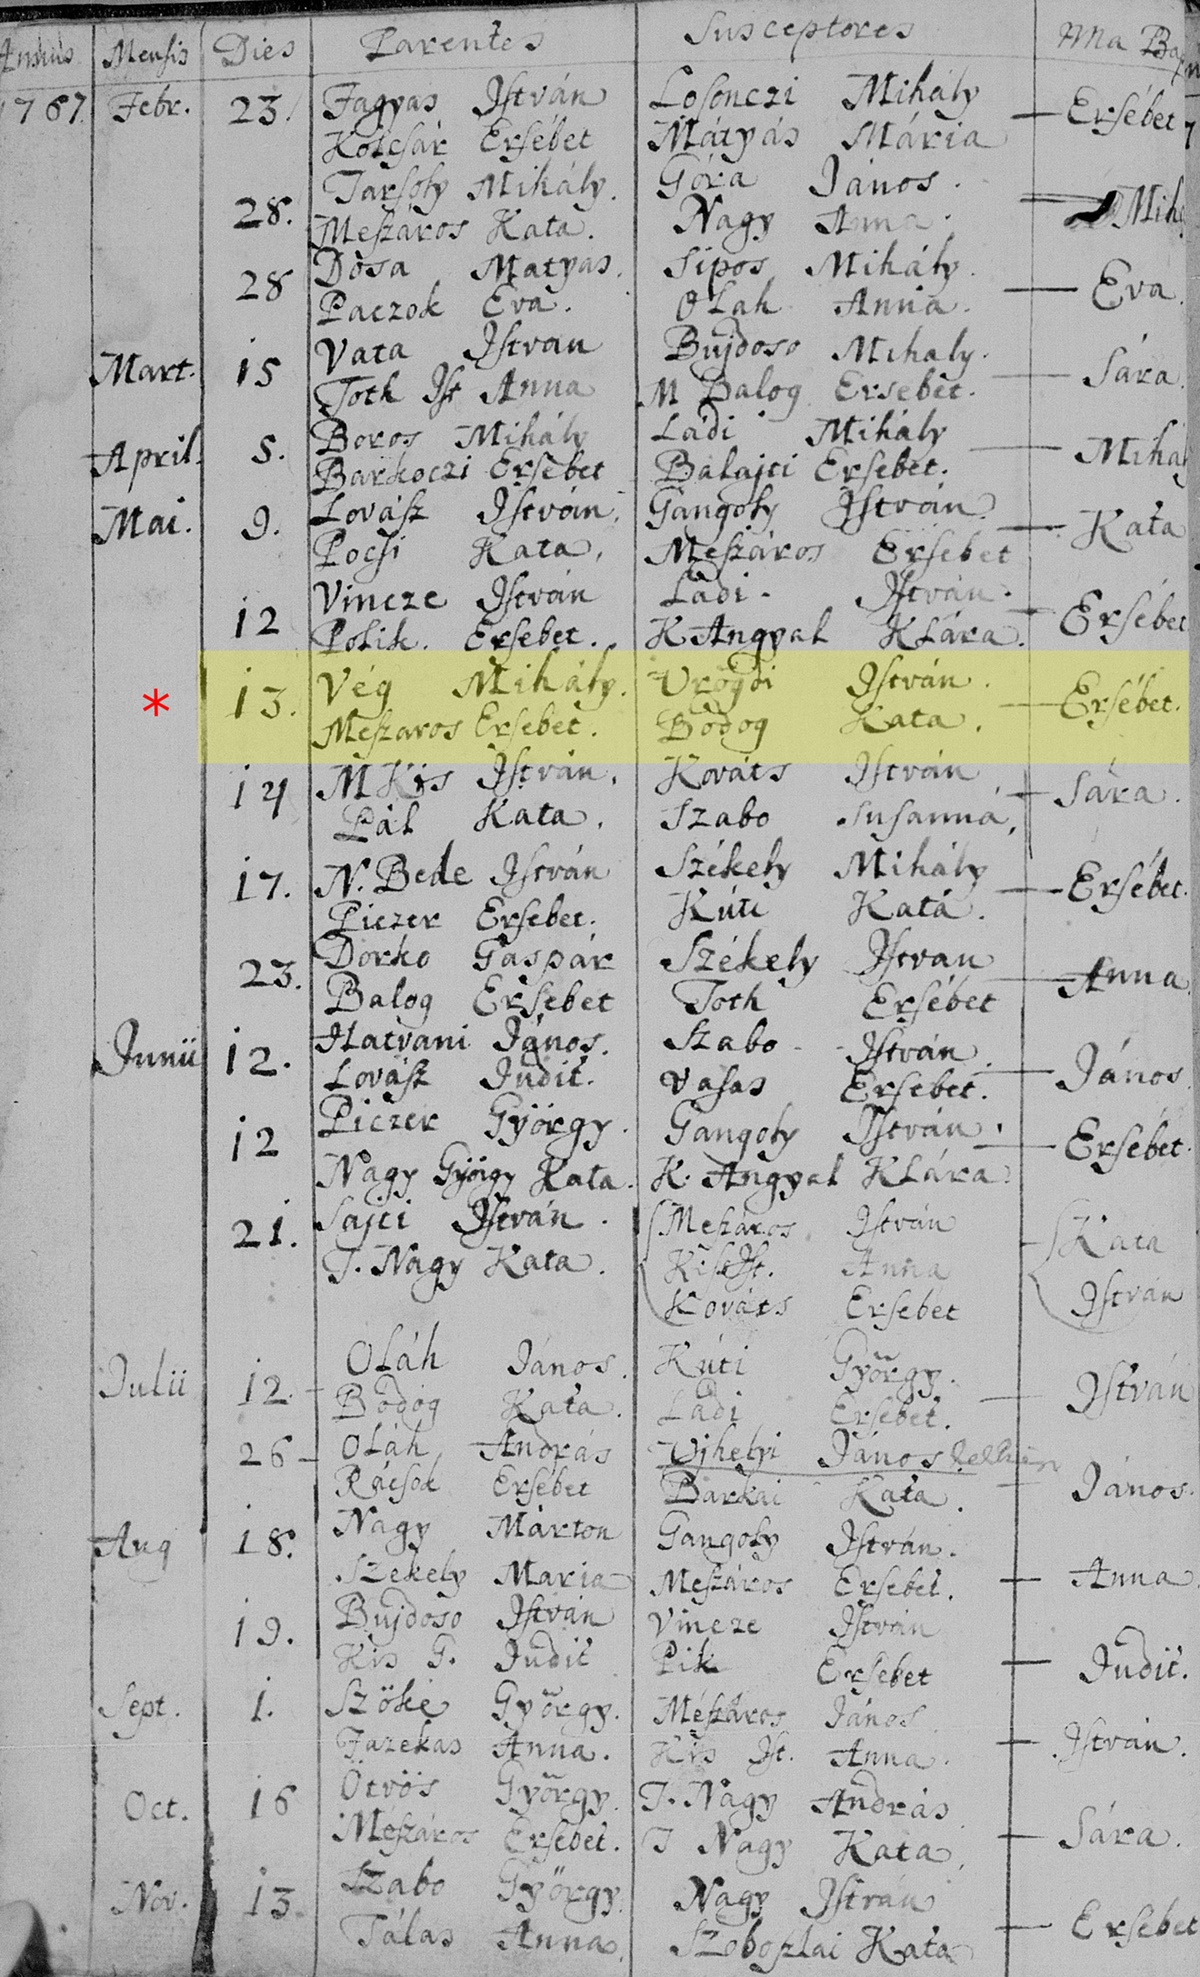 Annus Mensis Dies Parentes Susceptores Ma Bap
1767. Febr. 23. Fagyas Istvàn Losonczi Mihály
Kolcsár Ersébet Mátyás Mária Ersébet
Tarsoly Mihály. Góra János.
28. Meszaros Kata. Nagy Anna. Mih
Dosa Matyas. Sipos Mihály.
28 Paczok Eva. Olah Anna. Eva.
Vata Istvan Bujdoso Mihaly.
Mart. 15 Toth Ist Anna M Balog Ersebet. Sára.
Boros Mihály Ládi Mihály
April. 5. Barkoczi Ersébet Balajti Ersebet. Mihaly
Lovász István. Gangoly István.
Mai. 9. Pocsi Kata. Meszáros Ersebet Kata
Vincze István Ládi. István.
12 Polik. Ersebet. K Angyal Klára. Ersébet
* 13. Vég Mihály. Urögdi István. Ersébet.
Meszaros Ersebet. Bódog Kata.
14 M Kis István. Kováts István Sára.
Pál Kata. Szabo Susanná.
17. N. Bede István Székely Mihály Ersébet.
Piczer Ersebet. Kúti Katá.
Dorko Gaspár Székely Istvan
23. Balog Ersebet Toth Ersébet Anna
Junii 12. Hatvani János. Szabo István János
Lovász Judit. Vasas Ersebet.
Piczer György. Gangoly István.
12 Nagy György Kata. K. Angyal Klára Ersébet.
21. Sajti István. Meszáros István Kata
T. Nagy Kata. Kis Ist. Anna
Kováts Ersebet István
Oláh János. Kúti György.
Julii 12. Bodog Kata. Ladi Ersebet. István
26 Oláh András Ujhelyi János
Rácsok Ersébet Barkai Kata. János.
Nagy Márton Gangoly István.
Aug 18. Szekely Maria Meszáros Ersebet. Anna
Bujdoso István Vincze István
19. Kis G. Judit Pik Ersebet Judit.
Sept. 1. Szöke György. Mészáros János
Fazekas Anna. Kis Ist. Anna. István.
Oct. 16 Ötvös György. T. Nagy András
Mészáros Ersebet. T Nagy Kata. Sára.
Nov. 13 Szabo György. Nagy István
Tálas Anna. Szoboszlai Kata Ersebet